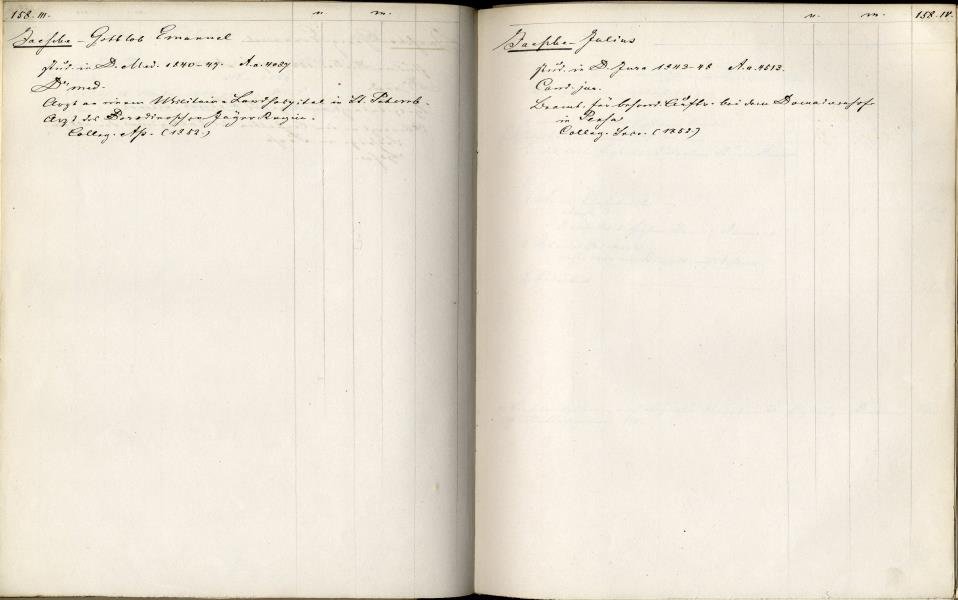 158. III.
n.
m.
Jaesche - Gottlob Emanuel
stud. in D. Med. 1840-47. A.a. 4087
Dr med.
Arzt an einem Militair-Landhospital in St. Petersb.
Arzt des Borodinoschen Jäger-Regim.
Colleg. Ass. (1852.)
n.
m.
158. IV.
Jaesche - Julius
stud. in D. Jura 1843-48 A.a. 4513.
Cand. jur.
Beamt. für besond. Auftr. bei dem Domainenhof
in Pensa
Colleg. Secr. (1852)